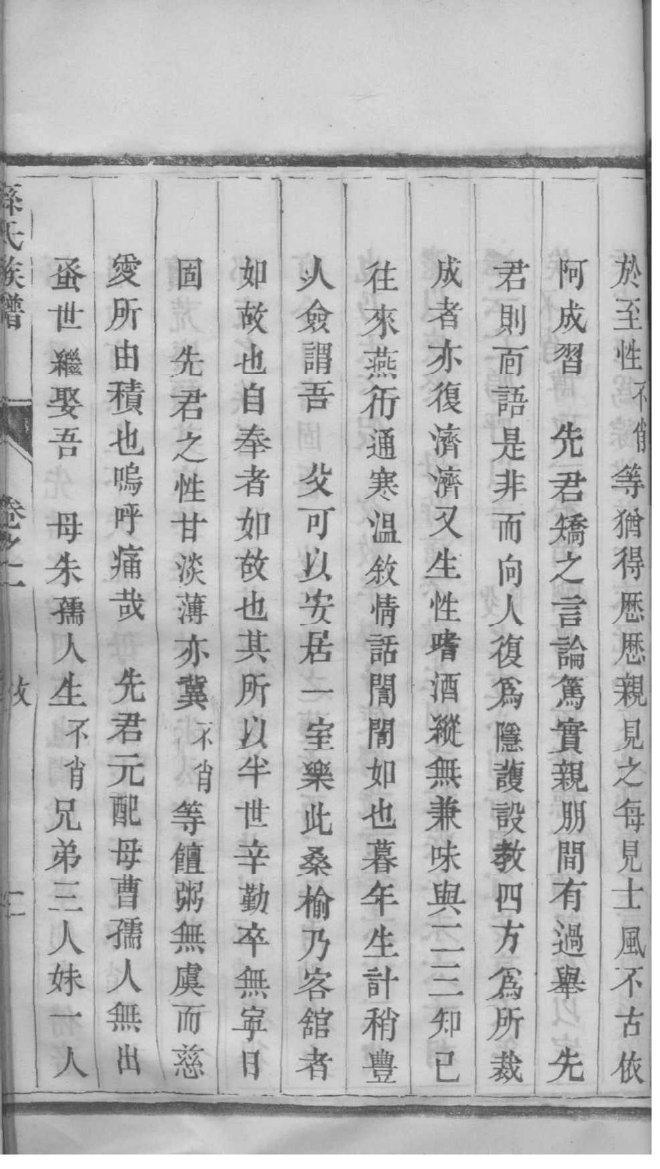 於至性不肖等猶得歷歷親見之每見士風不古依
阿成習　先君矯之言論篤實親朋間有過舉　先
君則面語是非而向人復爲隱護設教四方爲所裁
成者亦復濟濟又生性嗜酒縱無兼味與二三知已
往來燕衎通寒溫敘情話誾誾如也暮年生計稍豐
人僉謂吾　父可以安居一室樂此桑榆乃客舘者
如故也自奉者如故也其所以半世辛勤卒無寧日
固　先君之性甘淡薄亦冀不肖等饘粥無虞而慈
愛所由積也嗚呼痛哉　先君元配母曹孺人無出
蚤世繼娶吾　母朱孺人生不肖兄弟三人妹一人
孫氏族譜　卷之二　二